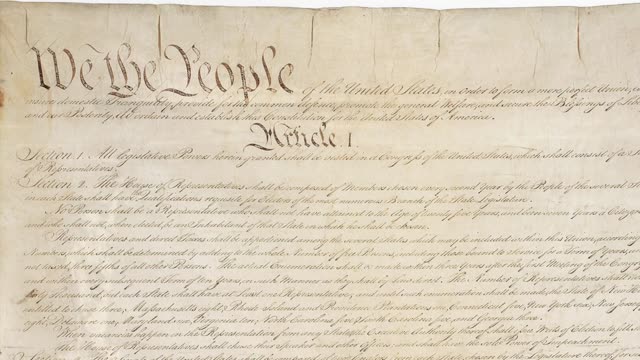 We the People of the United States, in Order to form a more perfect Union,
insure domestic Tranquility, provide for the common defence, promote the general Welfare, and secure the Blessings of
and our Posterity, do ordain and establish this Constitution for the United States of America.
Article. I.
Section. 1. All legislative Powers herein granted shall be vested in a Congress of the United States, which shall consist of a
of Representatives.
Section. 2. The House of Representatives shall be composed of Members chosen every second Year by the People of the several
in each State shall have Qualifications requisite for Electors of the most numerous Branch of the State Legislature.
No Person shall be a Representative who shall not have attained to the Age of twenty five Years, and been seven Years a Citizen
and who shall not, when elected, be an Inhabitant of that State in which he shall be chosen.
Representatives and direct Taxes shall be apportioned among the several States which may be included within this Union, according
Numbers, which shall be determined by adding to the whole Number of free Persons, including those bound to Service for a Term of Years,
not taxed, three fifths of all other Persons. The actual Enumeration shall be made within three Years after the first Meeting of the
and within every subsequent Term of ten Years, in such Manner as they shall by Law direct. The Number of Representatives shall
thirty Thousand, but each State shall have at Least one Representative; and until such enumeration shall be made, the State of New
entitled to chuse three, Massachusetts eight, Rhode-Island and Providence Plantations one, Connecticut five, New-York six, New Jersey
eight, Delaware one, Maryland six, Virginia ten, North Carolina five, South Carolina five, and Georgia three.
When vacancies happen in the Representation from any State, the Executive Authority thereof shall issue Writs of Election to fill
The House of Representatives shall chuse their Speaker and other Officers; and shall have the sole Power of Impeachment.